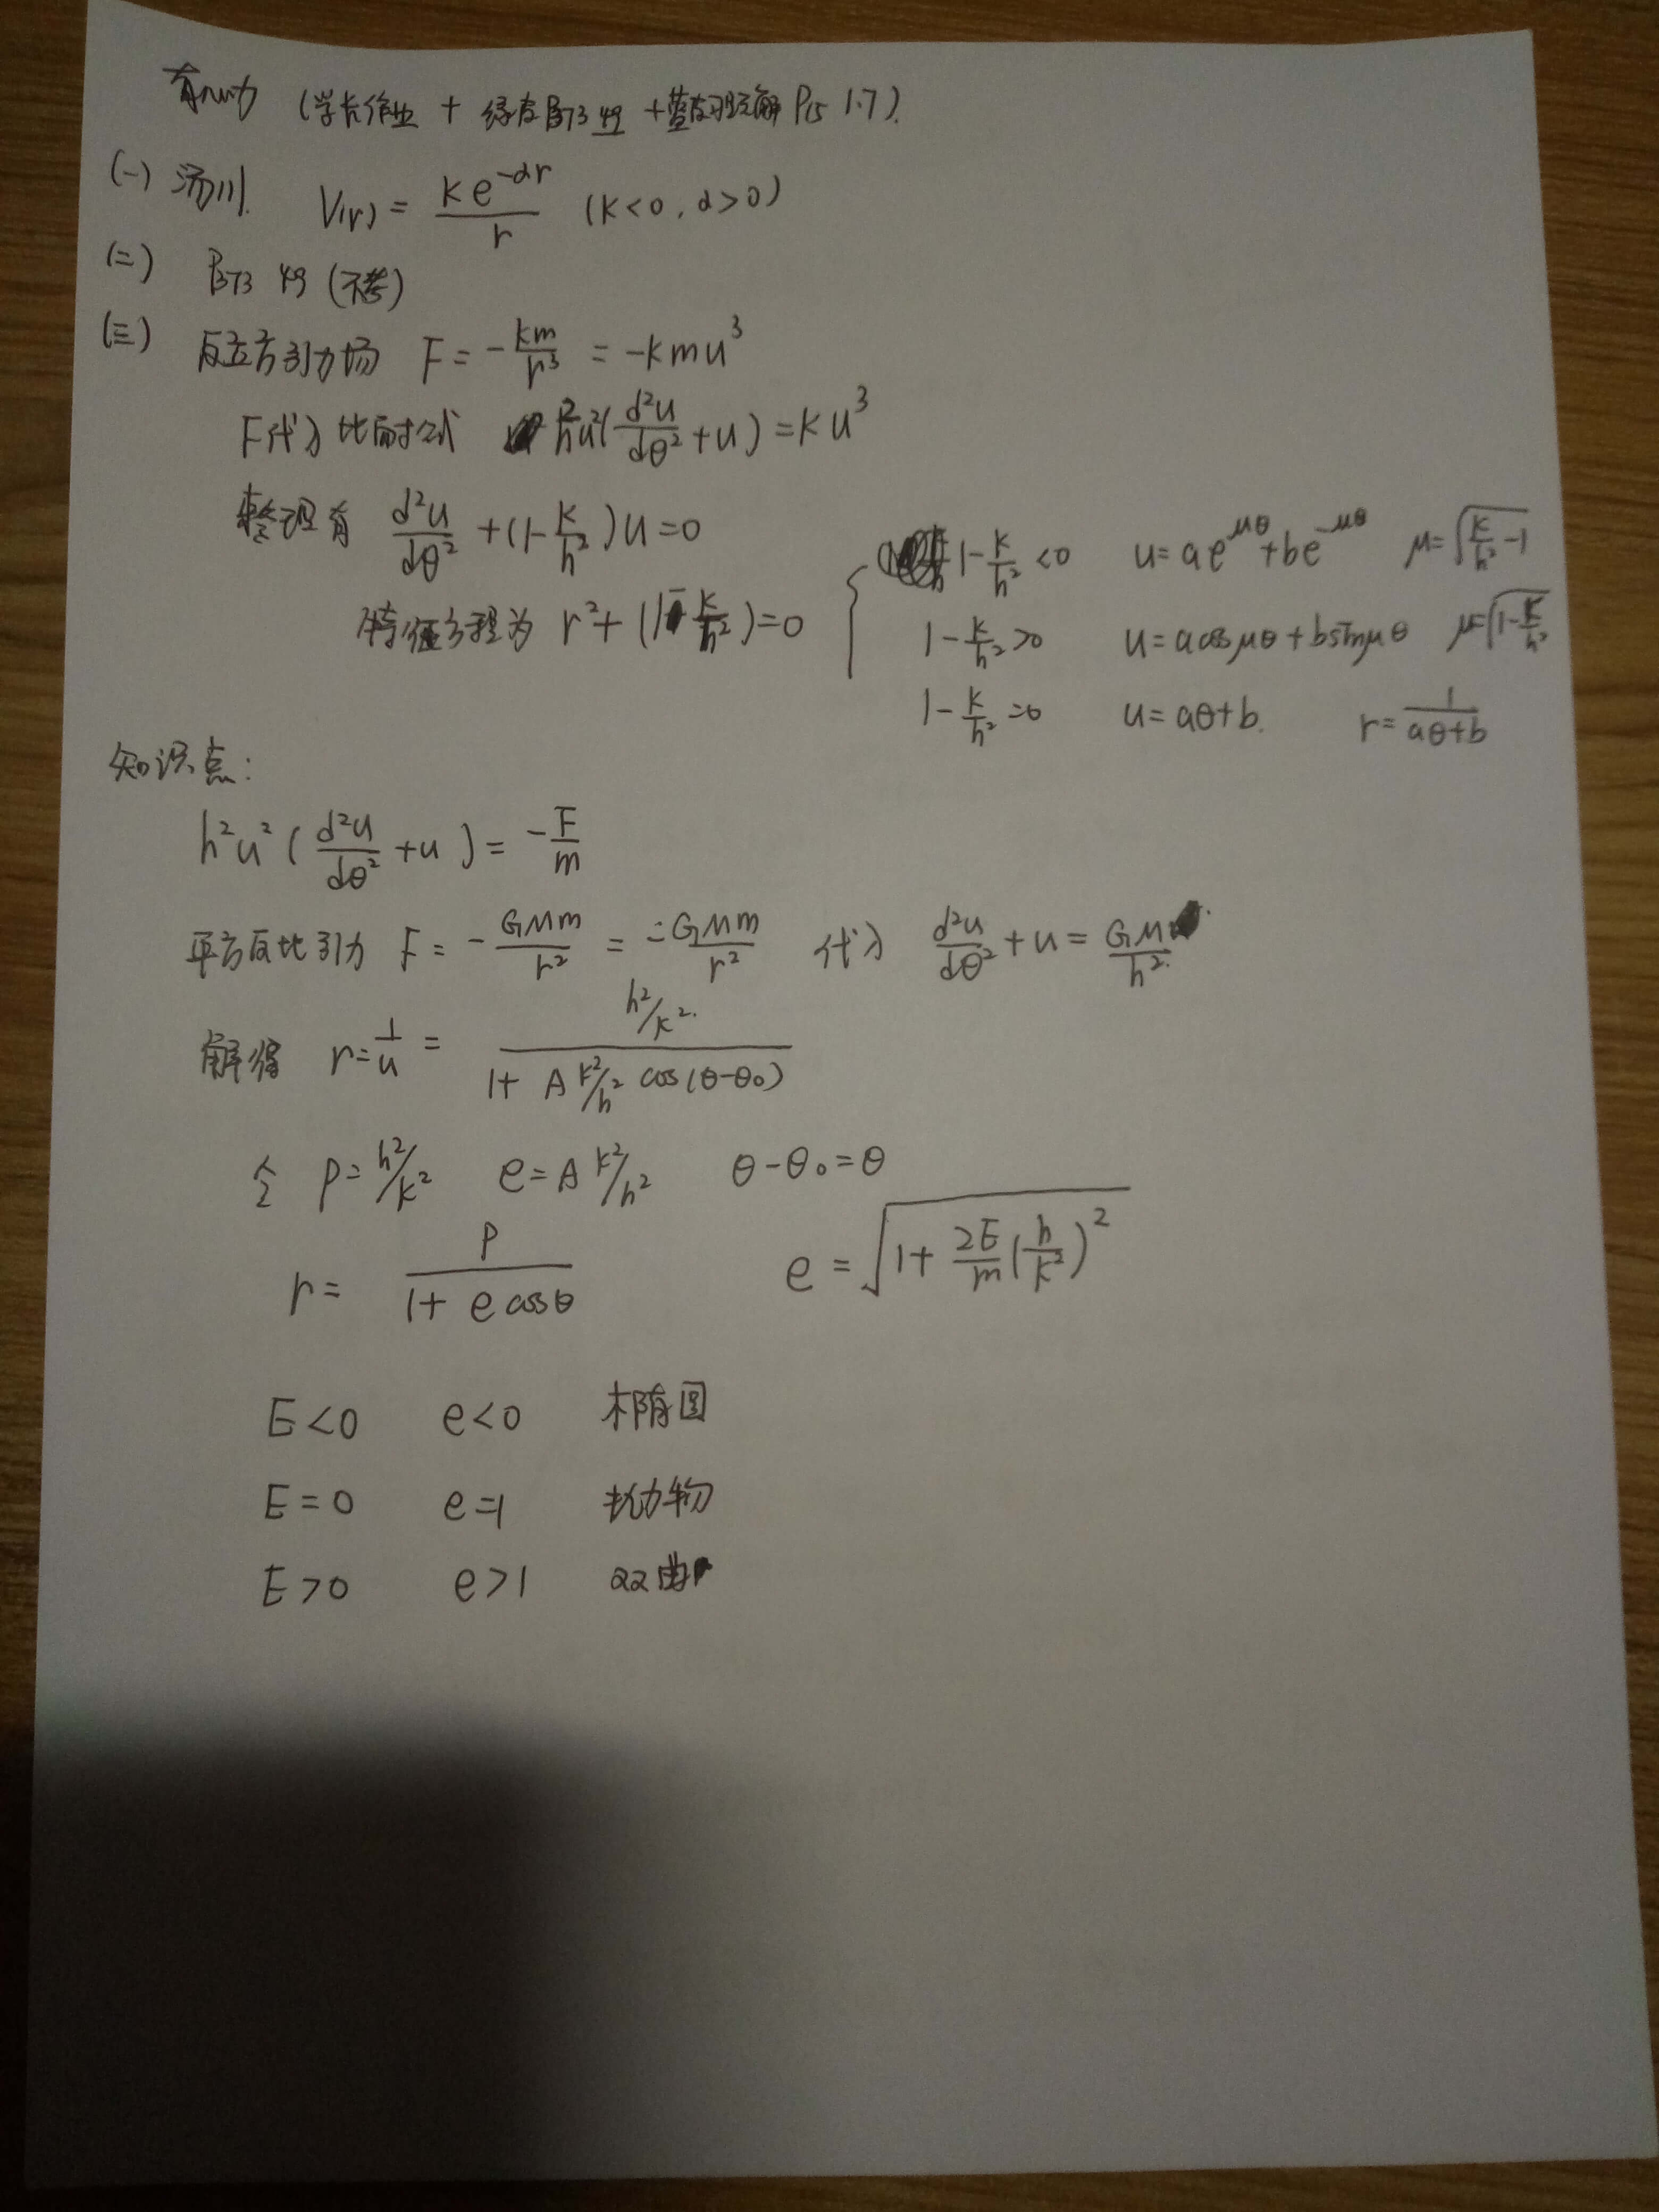 有心力 (学长作业 + 绿皮P373 4.9 + 蓝皮习题解 P15 1.7).
(一) 汤川. V(r) = \frac{ke^{-αr}}{r} (k<0, α>0)
(二) P373 4.9 (不考)
(三) 反立方引力场 F = -\frac{km}{r^3} = -kmu^3
F代入比耐公式 h^2u^2(\frac{d^2u}{dθ^2}+u) = ku^3
整理有 \frac{d^2u}{dθ^2} + (1-\frac{k}{h^2})u = 0
特征方程为 r^2 + (1-\frac{k}{h^2}) = 0
1-\frac{k}{h^2} < 0 u = ae^{μθ} + be^{-μθ} μ = \sqrt{\frac{k}{h^2}-1}
1-\frac{k}{h^2} > 0 u = a cosμθ + b sinμθ μ = \sqrt{1-\frac{k}{h^2}}
1-\frac{k}{h^2} = 0 u = aθ+b. r = \frac{1}{aθ+b}
知识点:
h^2u^2(\frac{d^2u}{dθ^2}+u) = -\frac{F}{m}
平方反比引力 F = -\frac{GMm}{r^2} = -\frac{GMm}{r^2} 代入 \frac{d^2u}{dθ^2}+u = \frac{GM}{h^2}.
解得 r = \frac{1}{u} = \frac{h^2/k^2.}{1+A k^2/h^2 cos(θ-θ_0)}
令 P = h^2/k^2 e = A k^2/h^2 θ-θ_0 = θ
r = \frac{P}{1+e cosθ} e = \sqrt{1+\frac{2E}{m}(\frac{h}{k^2})^2}
E<0 e<0 椭圆
E=0 e=1 抛物
E>0 e>1 双曲